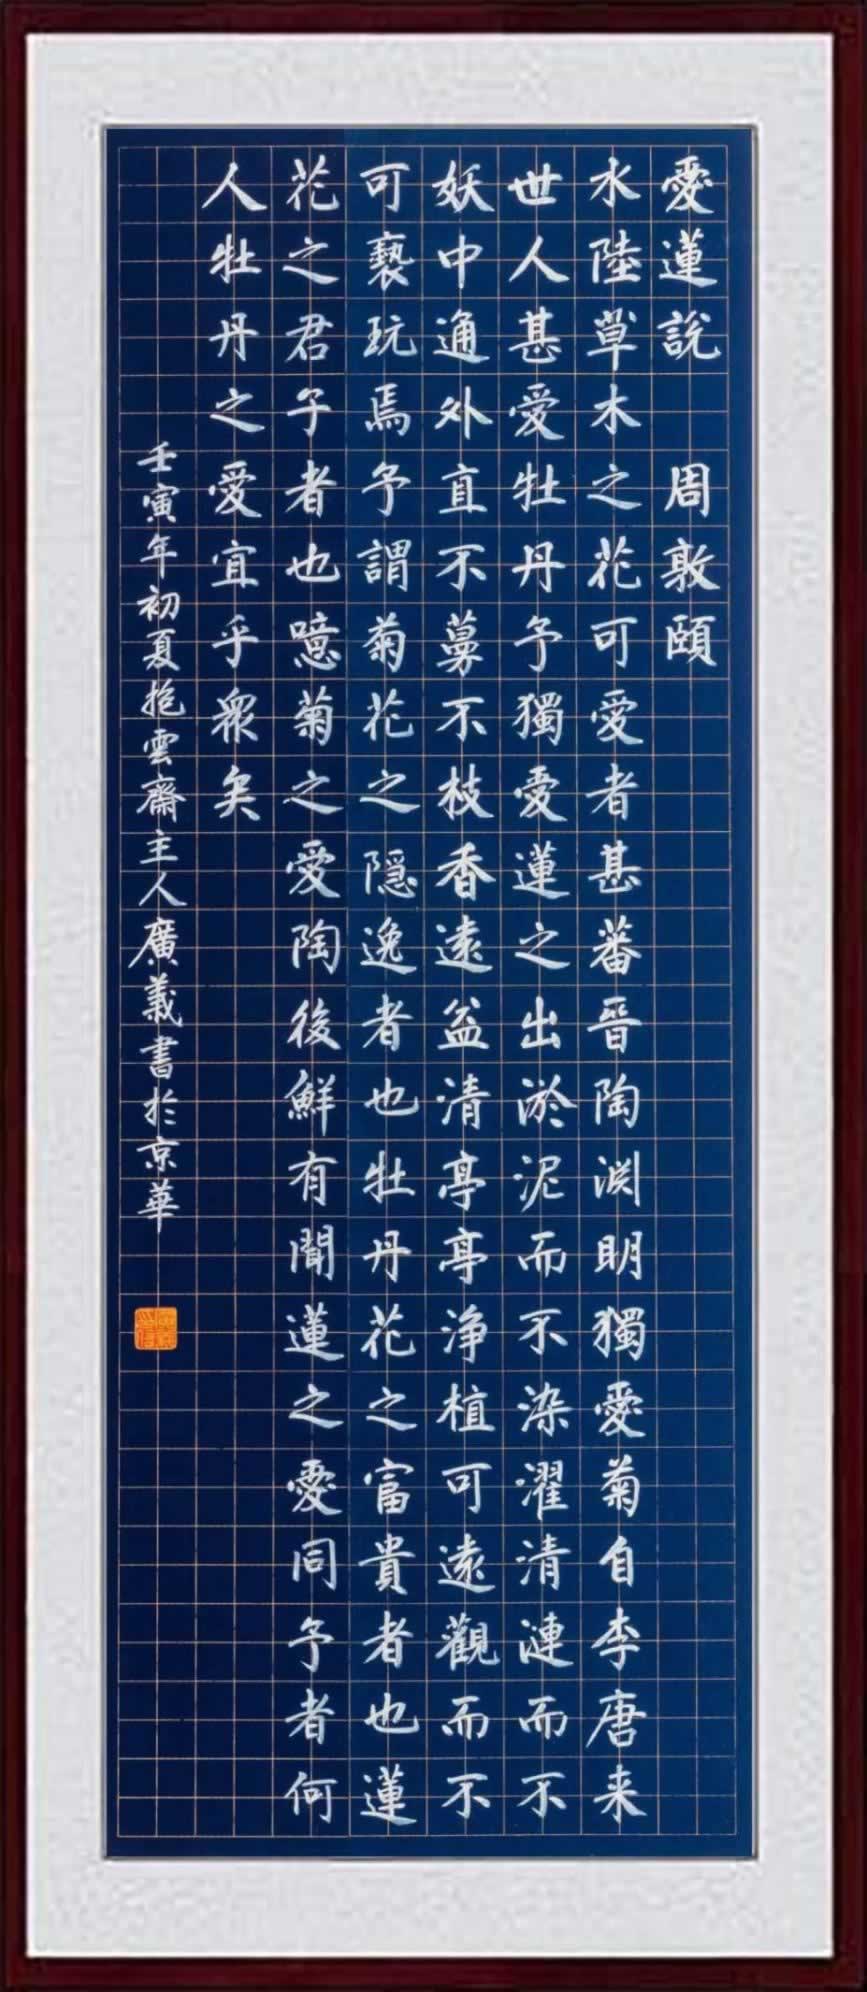 愛蓮說 周敦頤
水陸草木之花可愛者甚蕃晉陶渊明獨愛菊自李唐来
世人甚愛牡丹予獨愛蓮之出淤泥而不染濯清漣而不
妖中通外直不蔓不枝香遠益清亭亭淨植可遠觀而不
可褻玩焉予謂菊花之隠逸者也牡丹花之富貴者也蓮
花之君子者也噫菊之愛陶後鮮有聞蓮之愛同予者何
人牡丹之愛宜乎眾矣
壬寅年初夏抱雲齋主人廣義書於京華